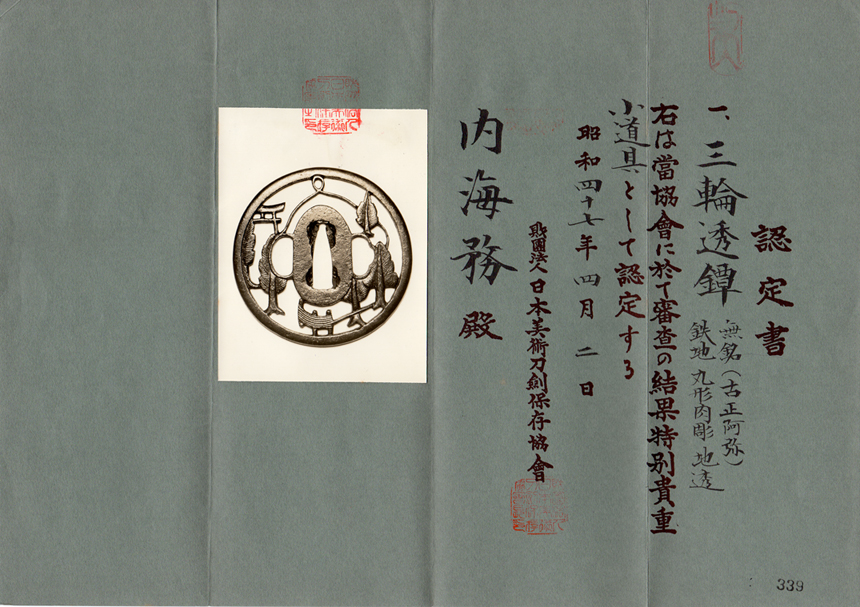 認定書
一、三輪透鐔
無銘(古正阿弥)
鉄地丸形肉彫地透
右は當協會に於て審査の結果特別貴重
小道具として認定する
昭和四十七年四月二日
財團法人日本美術刀劍保存協會
内海務殿
339